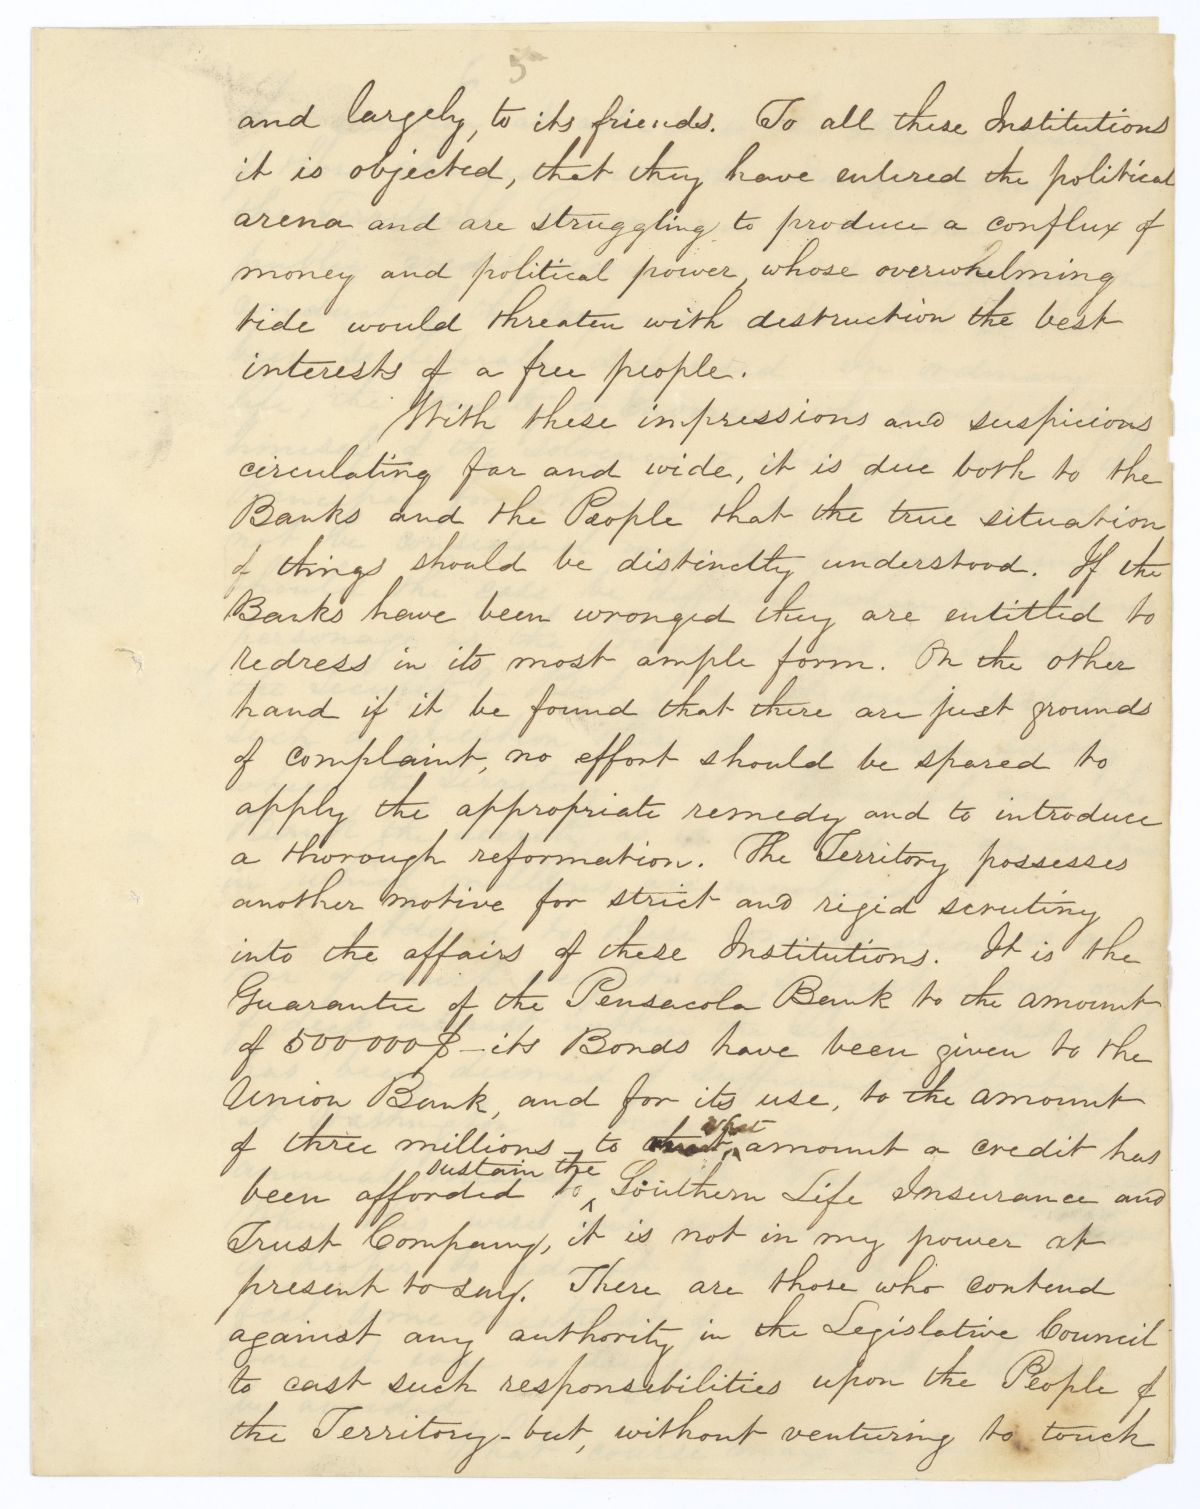 5
and largely, to its friends. To all these Institutions
it is objected, that they have entered the political
arena and are struggling to produce a conflux of
money and political power, whose overwhelming
tide would threaten with destruction the best
interests of a free people.
With these impressions and suspicions
circulating far and wide, it is due both to the
Banks and the People that the true situation
of things should be distinctly understood. If the
Banks have been wronged they are entitled to
redress in its most ample form. On the other
hand if it be found that there are just grounds
of complaint, no effort should be spared to
apply the appropriate remedy and to introduce
a thorough reformation. The Territory possesses
another motive for strict and rigid scrutiny
into the affairs of these Institutions. It is the
Guarantie of the Pensacola Bank to the amount
of 500000$ - its Bonds have been given to the
Union Bank, and for its use, to the amount
of three millions - to what amount a credit has
been afforded to sustain the Southern Life Insurance and
Trust Company, it is not in my power at
present to say. There are those who contend
against any authority in the Legislative Council
to cast such responsibilities upon the People of
the Territory - but, without venturing to touch